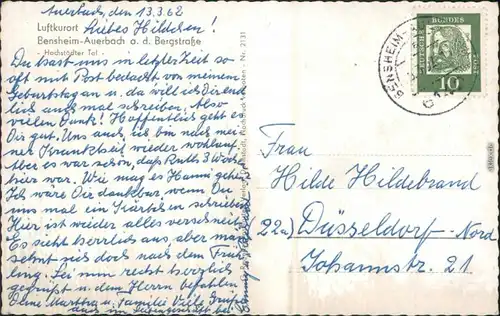 Auerbach, den 13.3.62
Luftkurort
Liebes Hildchen!
Bensheim-Auerbach a. d. Bergstraße
- Hochstädter Tal -
Du hast uns in letzter Zeit so
oft mit Post bedacht von meinem
Geburtstag an u. da will ich Dir end
lich auch mal schreiben. Also
vielen Dank! Hoffentlich geht es
Dir gut. Uns auch, ich bin nach mei-
ner Krankheit wieder wohlauf.
Aber es war schön, daß Ruth 3 Woch.
hier war. Wie mag es Hanni gehen?
Ich wäre Dir dankbar, wenn Du
uns mal ein Kärtchen schreiben
Hier ist wieder alles verschneit.
Es sieht herrlich aus, aber man
sehnt sich doch nach dem Früh
ling. Sei nun recht herzlich
gegrüßt u. dem Herrn befohlen
Deine Martha u. Familie Viele Grüße
auch im
Nr. 2131
BENSHEIM-
DEUTSCHE BUNDESPOST
10
Frau
Hilde Hildebrand
(22a) Düsseldorf-Nord
Johannstr. 21